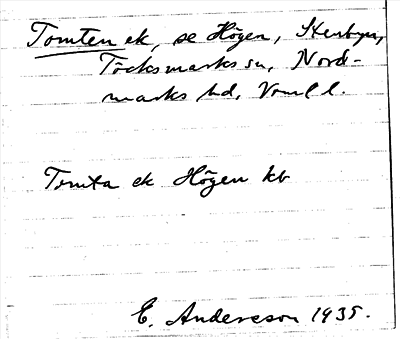 Tomten ek, se Högen, Stenbyn,
Töcksmarks sn, Nord-
marks hd, Vrml l.
Tomta ek Högen kb
E. Andersson 1935.